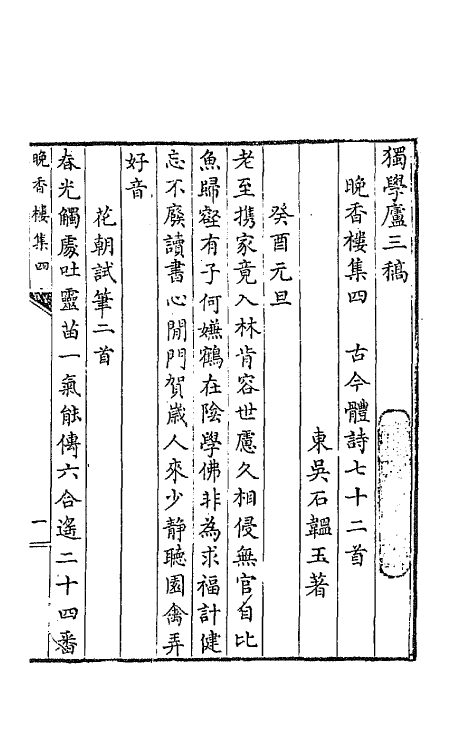 獨學廬三稿
晚香樓集四　古今體詩七十二首
東吳石韞玉著
癸酉元旦
老至攜家竟入林肯容世慮久相侵無官自比
魚歸壑有子何嫌鶴在陰學佛非為求福計健
忘不廢讀書心閒門賀歲人來少静聽園禽弄
好音
花朝試筆二首
春光觸處吐靈苗一氣能傳六合遙二十四番
晚香樓集四
一